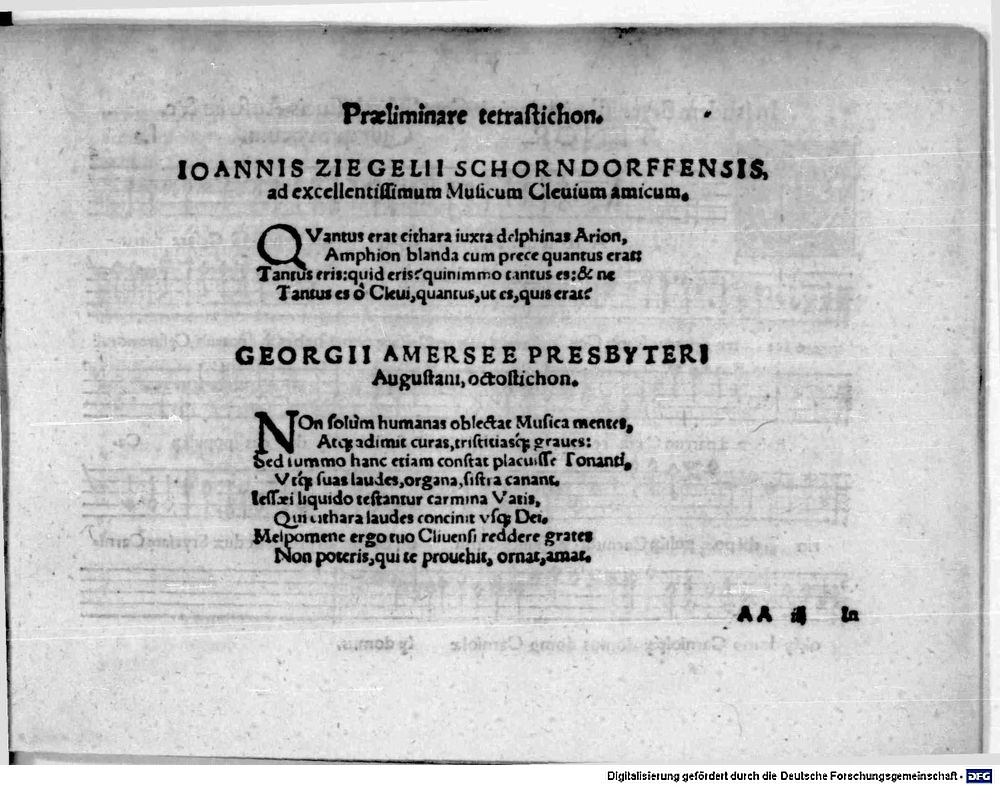 Præliminare tetrastichon.
IOANNIS ZIEGELII SCHORNDORFFENSIS,
ad excellentiſſimum Muſicum Cleuium amicum.
QVantus erat cithara iuxta delphinas Arion,
Amphion blanda cum prece quantus erat:
Tantus eris: quid eris? quinimmo tantus es: & ne
Tantus es ô Cleui, quantus, ut es, quis erat?
GEORGII AMERSEE PRESBYTERI
Auguſtani, octoſtichon.
NOn ſolùm humanas oblectat Muſica mentes,
Atqꝫ adimit curas, triſtitiasqꝫ graues:
Sed ſummo hanc etiam conſtat placuiſſe Tonanti,
Vtqꝫ ſuas laudes, organa, ſiſtra canant.
Ieſſæi liquido teſtantur carmina Vatis,
Qui cithara laudes concinit vſqꝫ Dei.
Melpomene ergo tuo Cliuenſi reddere grates
Non poteris, qui te prouehit, ornat, amat.
AA iij In
Digitalisierung gefördert durch die Deutsche Forschungsgemeinschaft - DFG